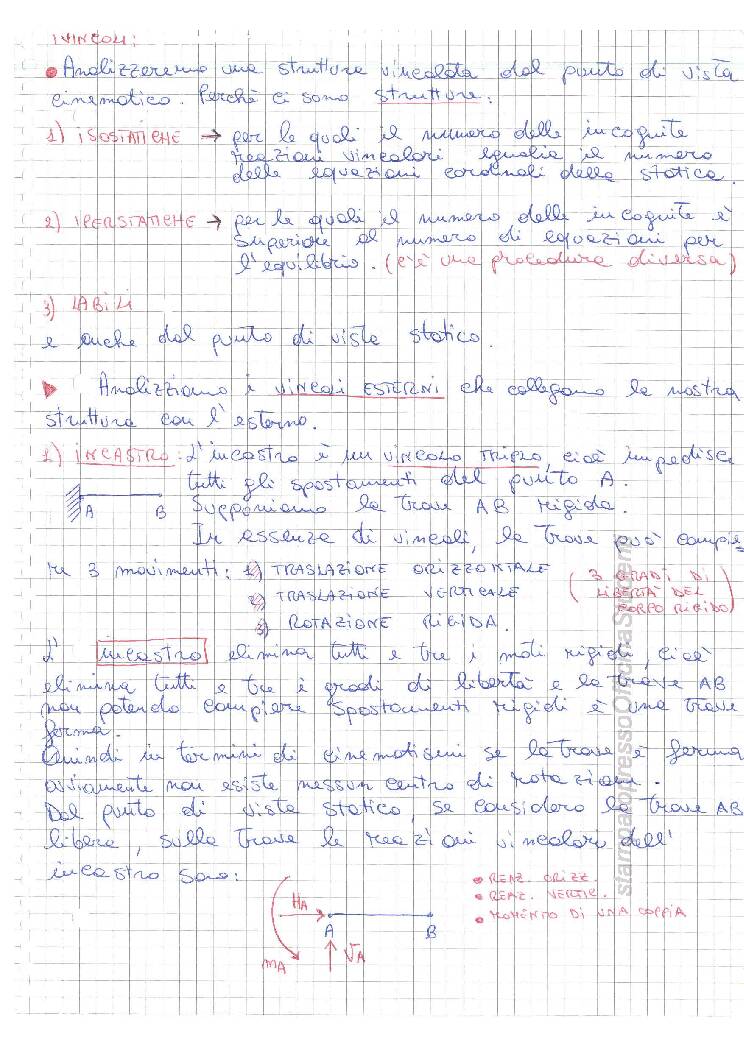 I VINCOLI:
• Analizzeremo una struttura vincolata dal punto di vista
cinematico. Perchè ci sono strutture:
1) ISOSTATICHE → per le quali il numero delle incognite
reazioni vincolari eguaglia il numero
delle equazioni cardinali della statica.
2) IPERSTATICHE → per le quali il numero delle incognite è
superiore al numero di equazioni per
l'equilibrio. (c'è una procedura diversa)
3) LABILI
e anche dal punto di vista statico.
Analizziamo i VINCOLI ESTERNI che collegano la nostra
struttura con l'esterno.
1) INCASTRO: L'incastro è un VINCOLO TRIPLO, cioè impedisce
tutti gli spostamenti del punto A.
A B Supponiamo la trave AB rigida.
In assenza di vincoli, la trave può compie=
re 3 movimenti: 1) TRASLAZIONE ORIZZONTALE (3 GRADI DI
2) TRASLAZIONE VERTICALE LIBERTÀ DEL
3) ROTAZIONE RIGIDA. CORPO RIGIDO)
L' incastro elimina tutti e tre i moti rigidi, cioè
elimina tutti e tre i gradi di libertà e la trave AB
non potendo compiere spostamenti rigidi è una trave
ferma.
Quindi in termini di cinematismi se la trave è ferma
ovviamente non esiste nessun centro di rotazione.
Dal punto di vista statico, se considero la trave AB
libera, sulla trave le reazioni vincolari dell'
incastro sono:
• REAZ. ORIZZ.
• REAZ. VERTIC.
• MOMENTO DI UNA COPPIA
HA
A B
VA
MA